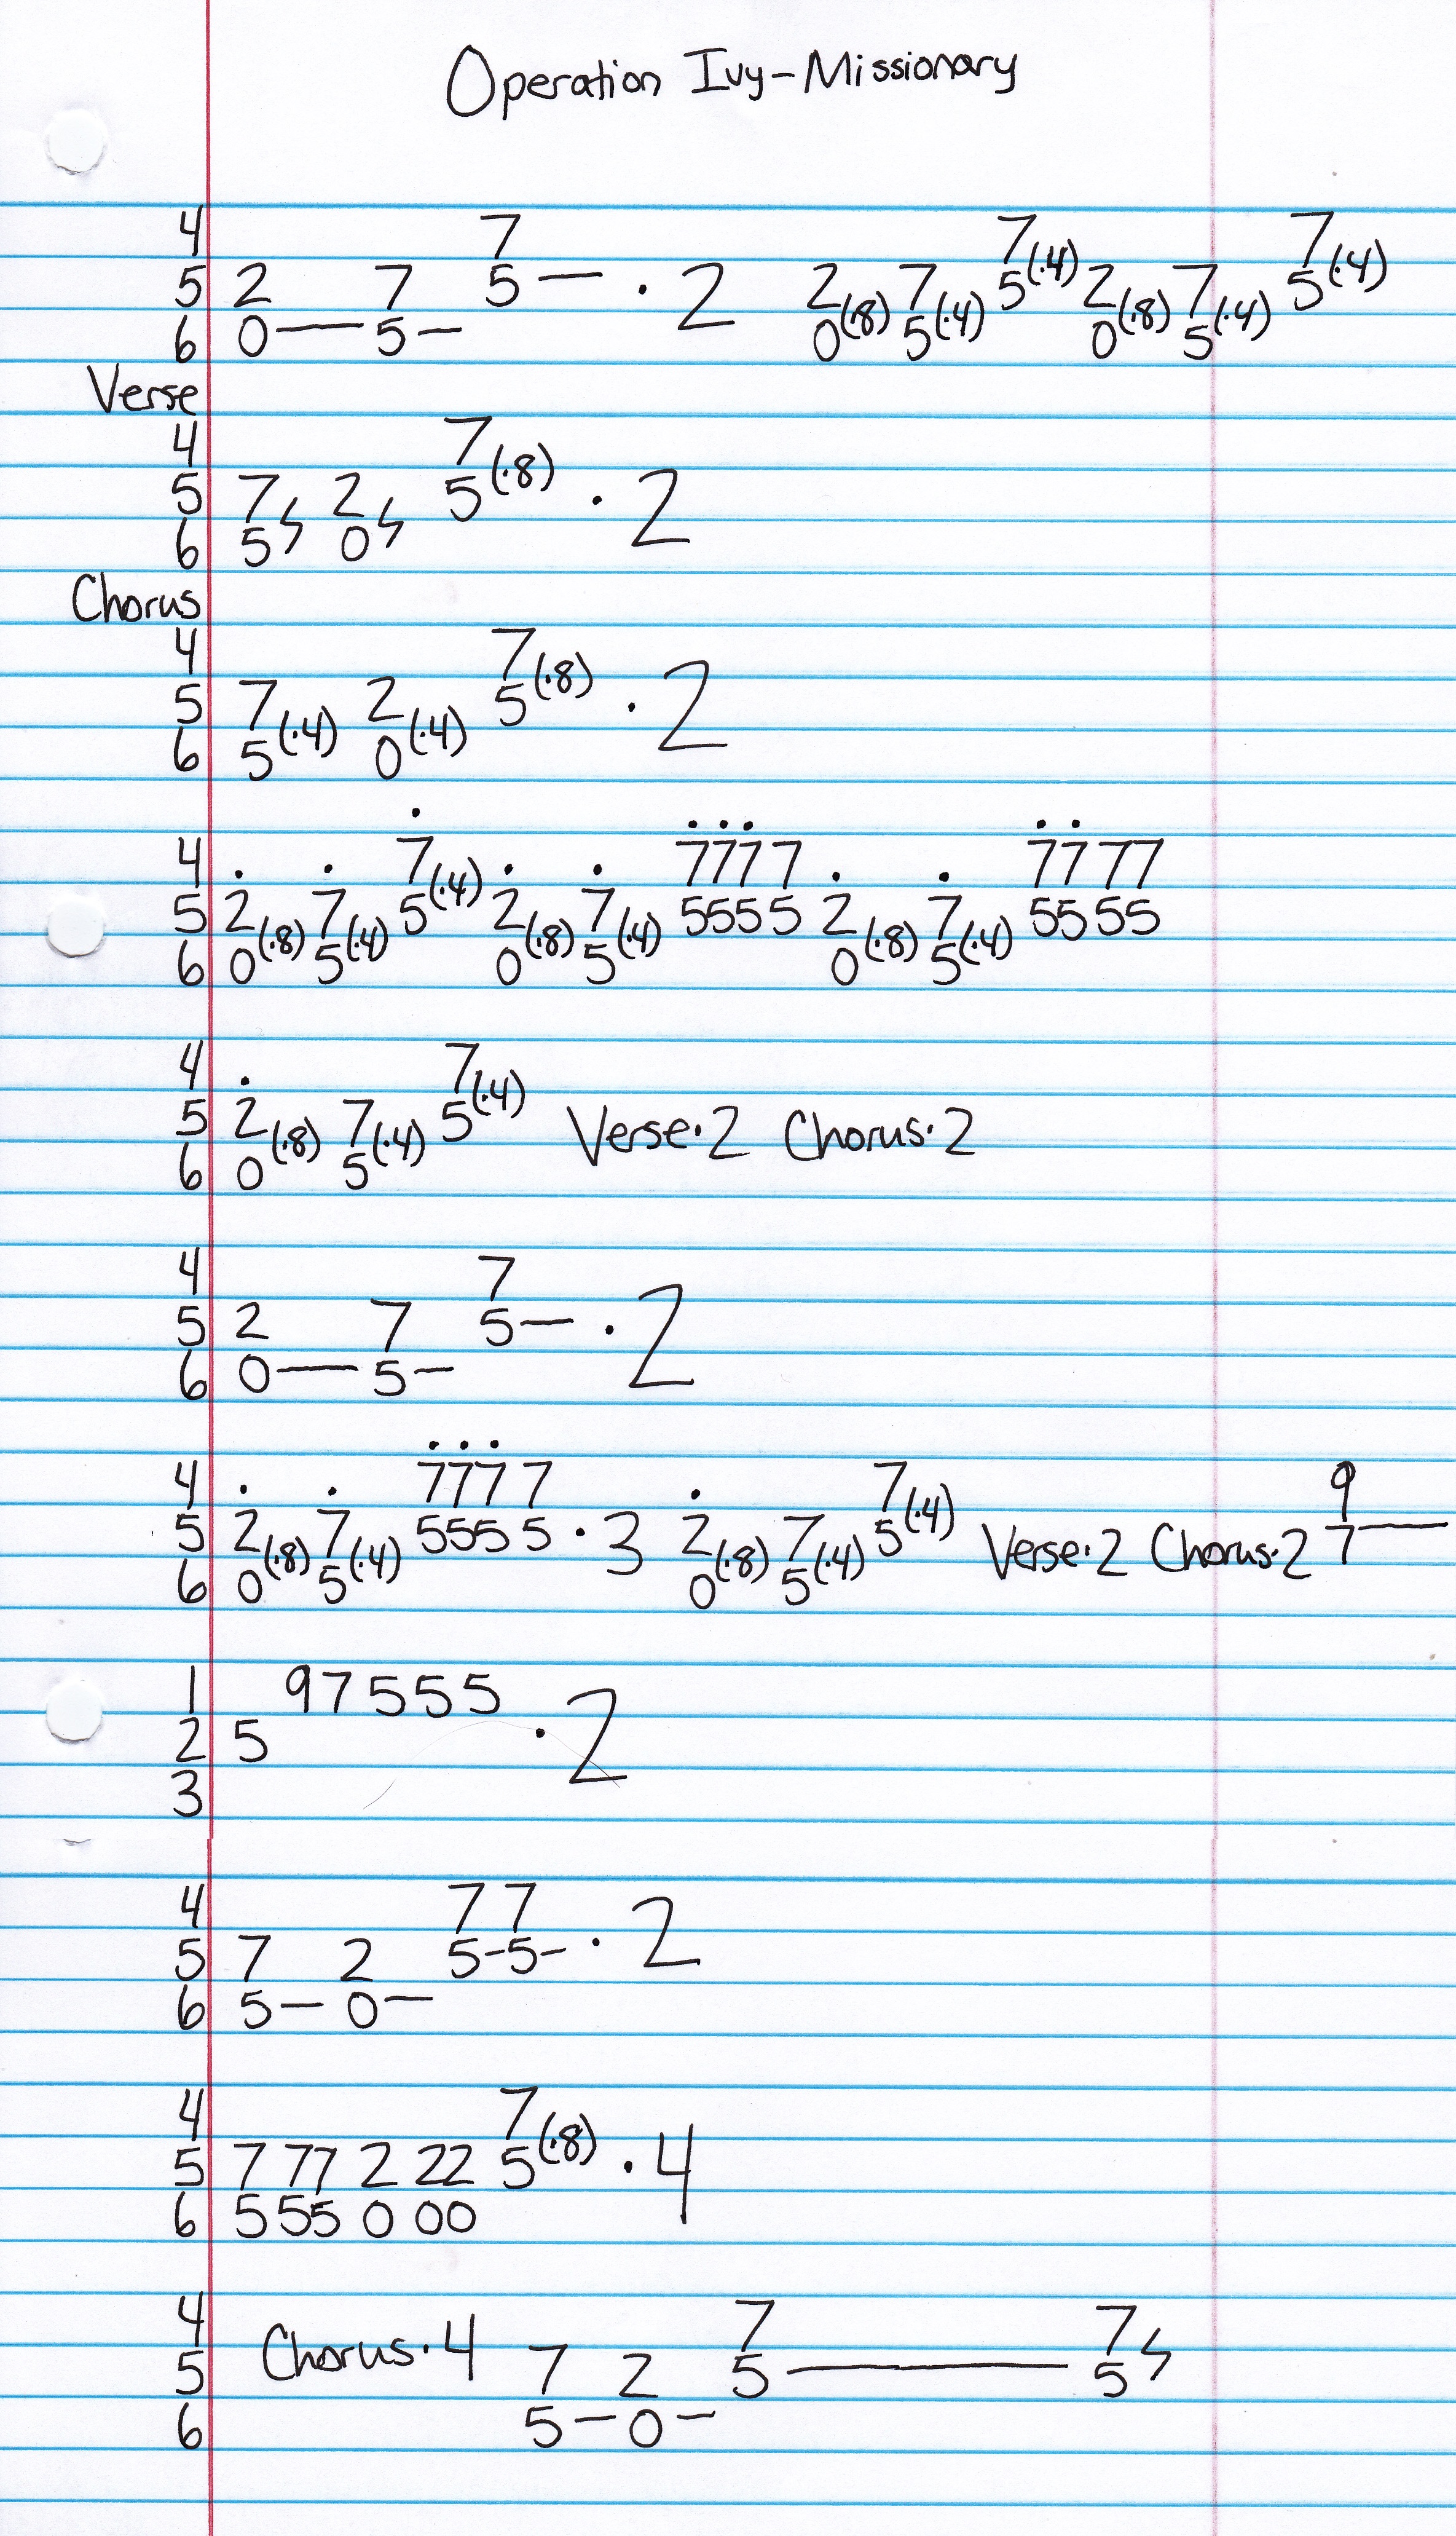 Operation Ivy-Missionary
4 7 7(·4) 7(·4)
5 2 7 5— ·2 2 7 5 2 7 5
6 0—5— 0(·8) 5(·4) 0(·8) 5(·4)
Verse
4 7(·8)
5 7 2 5 ·2
6 5 0
Chorus
4 7(·8)
5 7 2 5 ·2
6 5(·4) 0(·4)
4 7(·4) 7777 7777
5 2 7 5 2 7 5555 2 7 5555
6 0(·8) 5(·4) 0(·8) 5(·4) 0(·8) 5(·4)
4 7(·4)
5 2 7 5 Verse·2 Chorus·2
6 0(·8) 5(·4)
4 7
5 2 7 5— ·2
6 0—5—
4 7777 7(·4) 9
5 2 7 5555 ·3 2 7 5 Verse·2 Chorus·2 7—
6 0(·8) 5(·4) 0(·8) 5(·4)
1 97555
2 5 ·2
3
4 77
5 7 2 5-5- ·2
6 5—0—
4 7(·8)
5 7 77 2 22 5 ·4
6 5 55 0 00
4 7 7
5 Chorus·4 7 2 5—5
6 5—0—